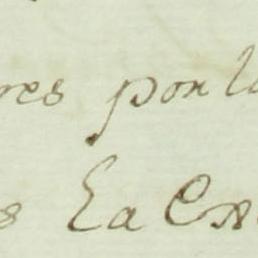 res por la
s La Cx